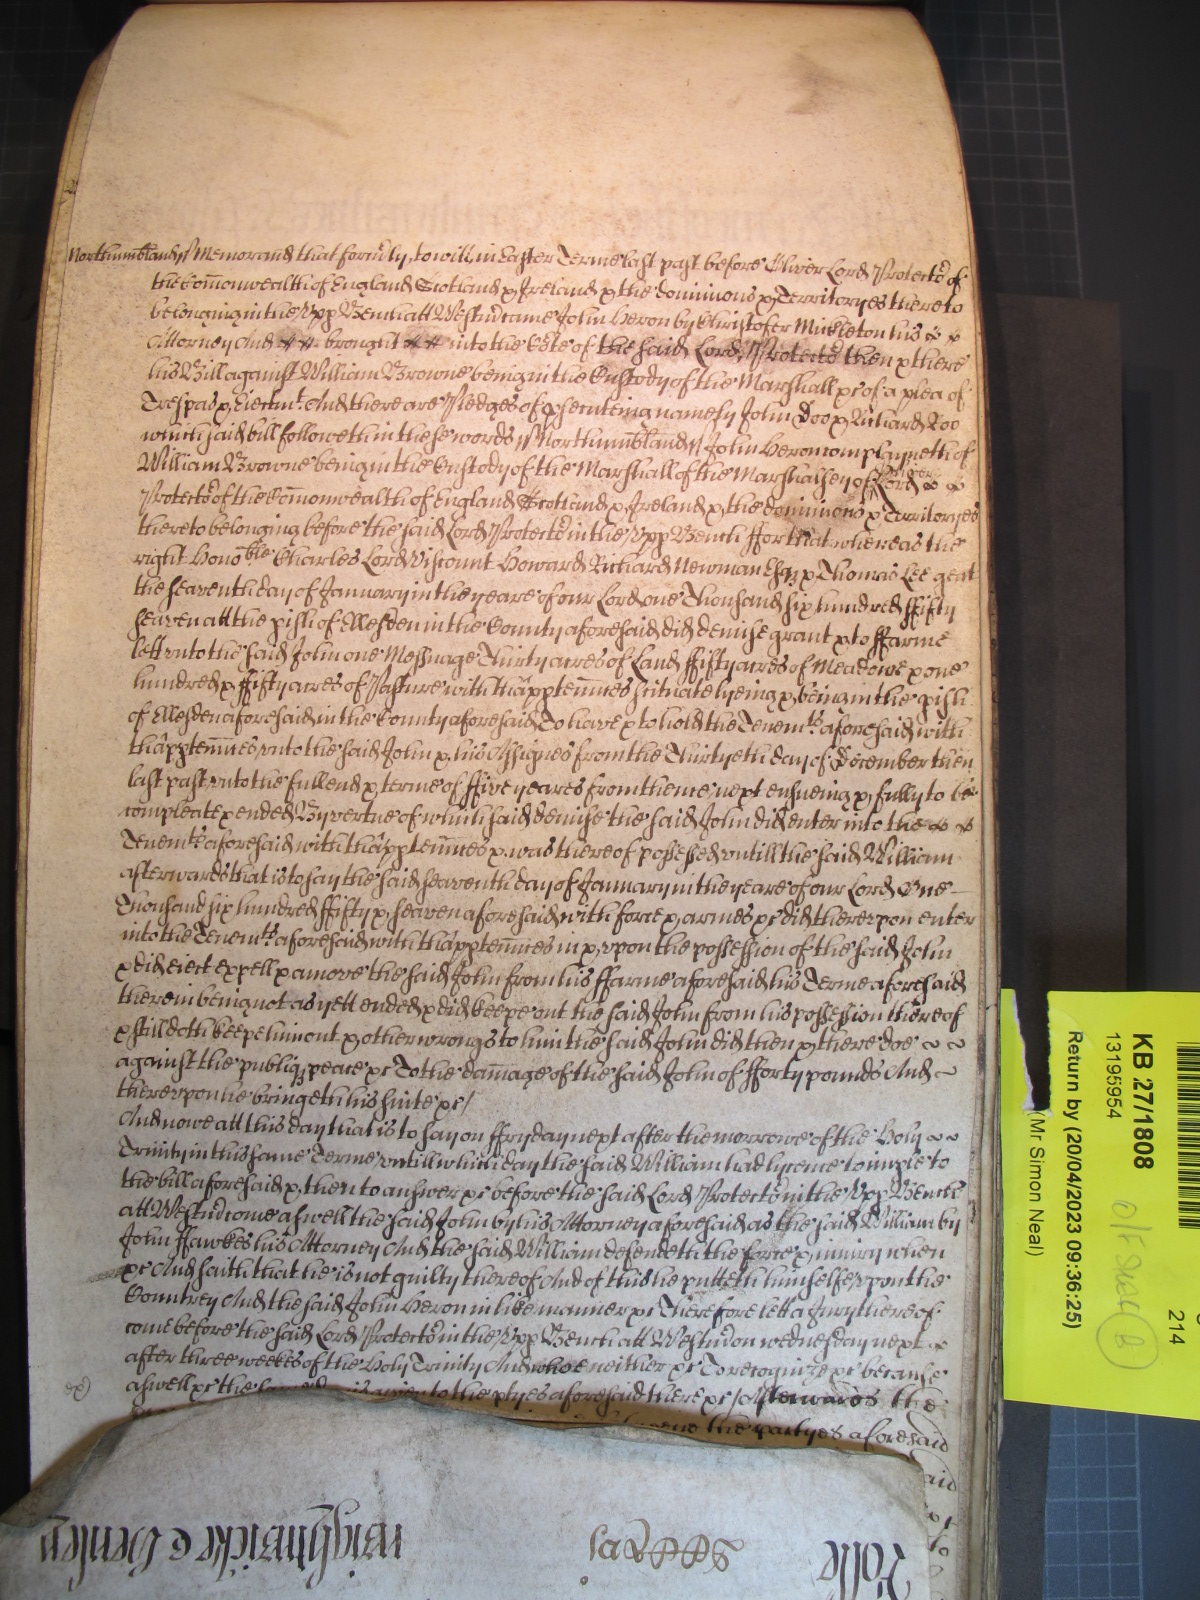 Northumbland ss Memorand that formly, to witt, in Easter Terme last past before Oliver Lord Protector of
the Comonwealth of England Scotland & Ireland & the dominions & Territoryes thereto
belonging in the Upp Bench att Westm came John Heron by Christofer Mickleton his
Attorney And brought into the Cort of the said Lord Protector then & there
his Bill against William Browne being in the Custody of the Marshall &c of a plea of
Trespas & Eiectmt And there are Pledges of psecuteing namely John Doo & Richard Roo
which said bill followeth in these words ss Northumbland ss John Heron complayneth of
William Browne being in the Custody of the Marshall of the Marshalsey of Lord
Protector of the Comonwealth of England Scotland & Ireland & the dominions & Territoryes
thereto belonging before the said Lord Protector in the Upp Bench ffor that whereas the
right Honoble Charles Lord Viscount Howard Richard Newman Esqr & Thomas Lee gent
the seaventh day of January in the yeare of our Lord one Thousand six hundred ffifty
seaven att the pish of Ellesden in the County aforesaid did demise grant & to ffarme
lett unto the said John one Messuage Thirty acres of Land ffifty acres of Meadowe & one
hundred & ffifty acres of Pasture with thapptennces scituate lyeing & being in the pish
of Ellesden aforesaid in the County aforesaid To have & to hold the Tenemts aforesaid with
thapptennces unto the said John & his Assignes from the Thirtyeth day of December then
last past unto the full end & terme of ffive yeares from thence next ensueing & fully to be
compleate & ended By vertue of which said demise the said John did enter into the
Tenemts aforesaid with thapptennces & was thereof possessed untill the said William
afterwards that is to say the said seaventh day of January in the yeare of our Lord One
Thousand six hundred ffifty & seaven aforesaid with force & armes &c did thereupon enter
into the Tenemts aforesaid with thapptennces in & upon the possession of the said John
& did eiect expell & amove the said John from his ffarme aforesaid his Terme aforesaid
therein being not as yett ended & did keepe out the said John from his possession thereof
& still doth keepe him out & other wrongs to him the said John did then & there doe
against the publiq peace &c To the damage of the said John of fforty pounds And
thereupon he bringeth his suite &c /
And nowe att this day that is to say on ffryday next after the morrowe of the Holy
Trinity in this same Terme untill which day the said William had lycence to imple to
the bill aforesaid & then to answer &c before the said Lord Protector in the Upp Bench
att Westm come aswell the said John by his Attorney aforesaid as the said William by
John ffawkes his Attorney And the said William defendeth the force & iniury when
&c And saith that he is not guilty thereof And of this he putteth himselfe upon the
Countrey And the said John Heron in like manner &c Therefore lett a Jury thereof
come before the said Lord Protector in the Upp Bench att Westm on wednesday next
after three weekes of the Holy Trinity And whoe neither &c To recognize &c because
aswell &c the said to the ptyes aforesaid there &c / Afterwards the
the partyes aforesaid
said
KB 27/1808
13195954
Return by (20/04/2023 09:36:25)
(Mr Simon Neal)
214